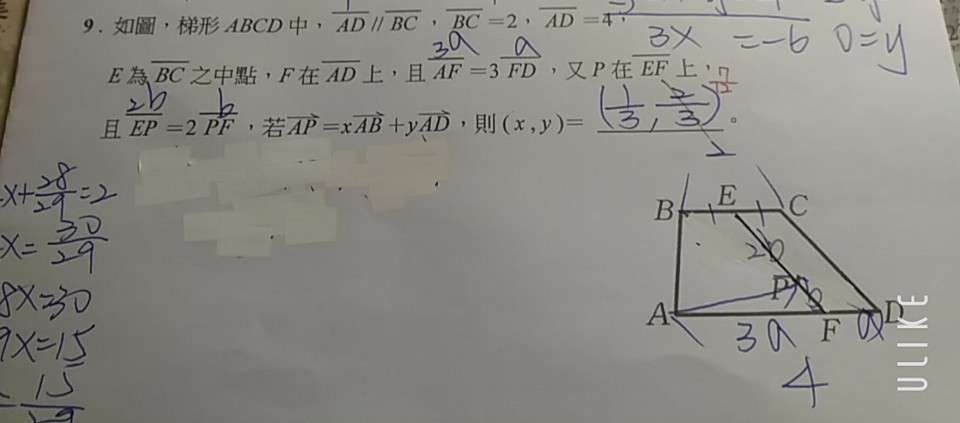 9. 如圖，梯形ABCD中，AD // BC，BC =2，AD =4，
3x =-6 0=y
3a a
E為BC之中點，F在AD上，且AF =3 FD，又P在EF上，
2b b
7/12
且EP =2 PF，若AP =xAB +yAD，則(x, y)= (1/3, 2/3)。
x+28/29=2
x=30/29
8x=30
9x=15
15
2
B E C
2b
P b
A F D
3a a
4
ULIKE